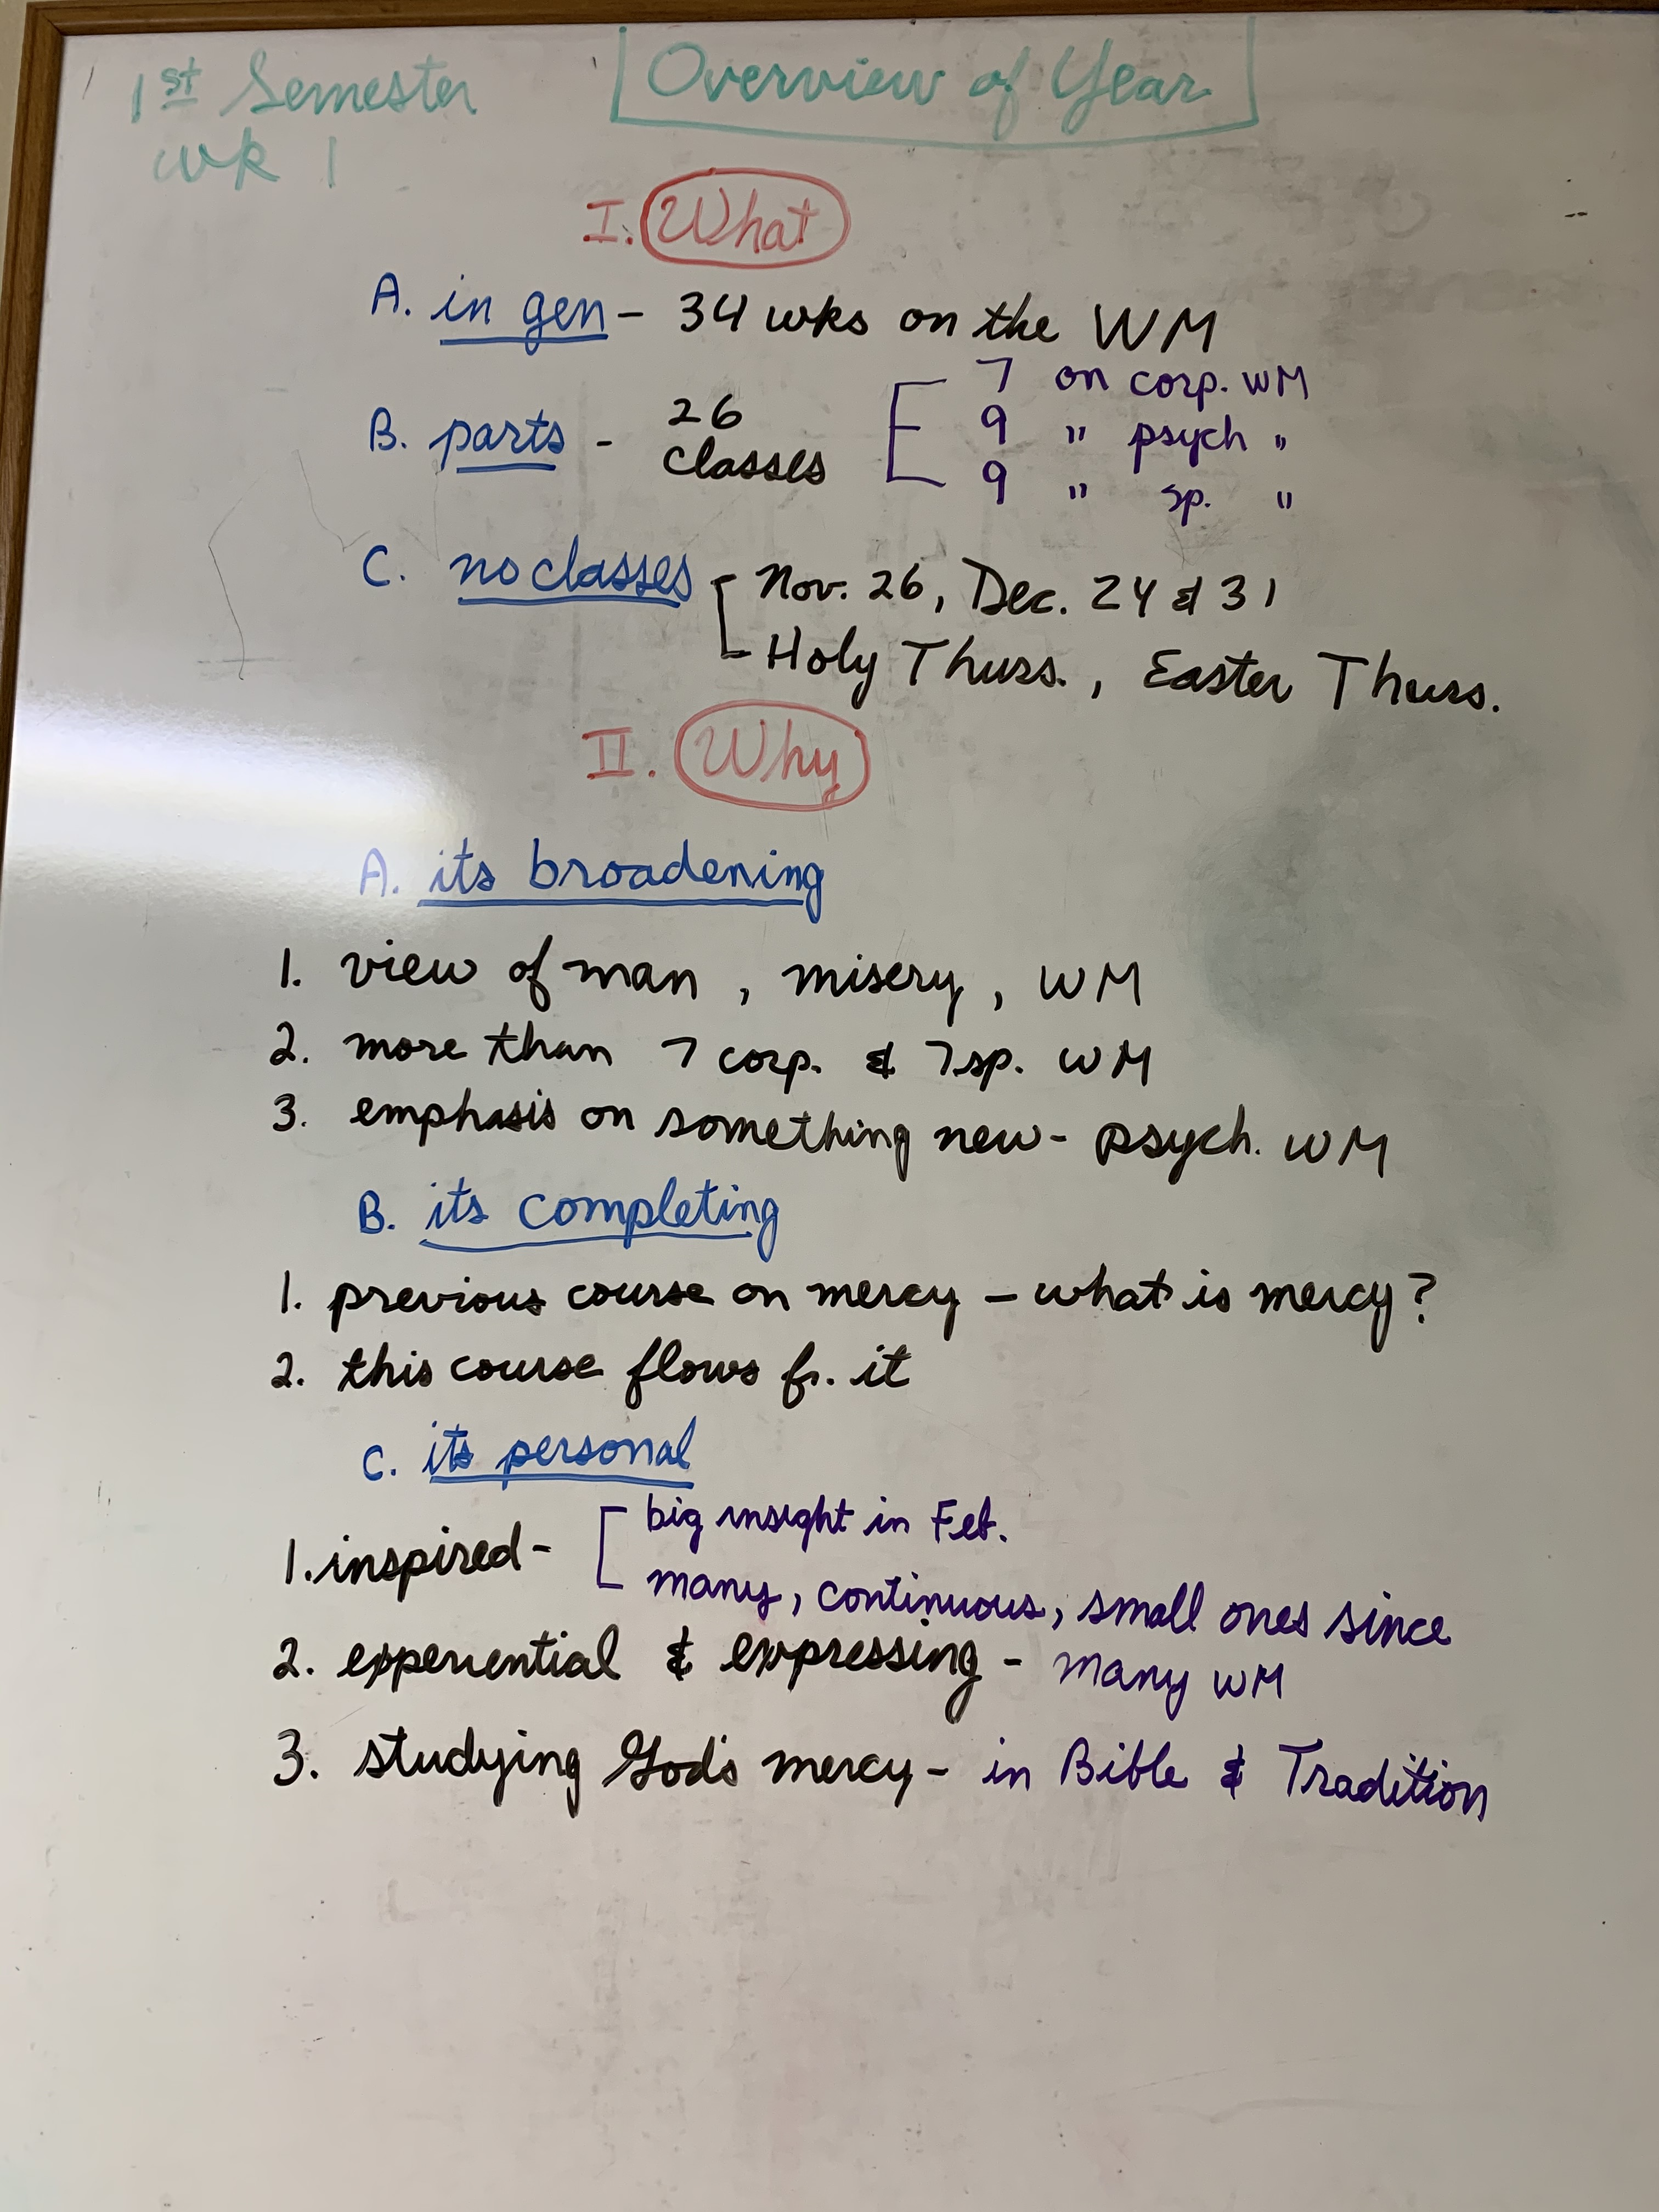 1st Semester
Overview of Year
wk 1
I. What
A. in gen - 34 wks on the WM
B. parts - 26 classes
7 on corp. WM
9 " psych "
9 " sp. "
C. no classes
Nov. 26, Dec. 24 & 31
Holy Thurs., Easter Thurs.
II. Why
A. its broadening
1. view of man, misery, WM
2. more than 7 corp. & 7 sp. WM
3. emphasis on something new - psych. WM
B. its completing
1. previous course on mercy - what is mercy?
2. this course flows fr. it
C. its personal
1. inspired -
big insight in Feb.
many, continuous, small ones since
2. experiential & expressing - many WM
3. studying God's mercy - in Bible & Tradition